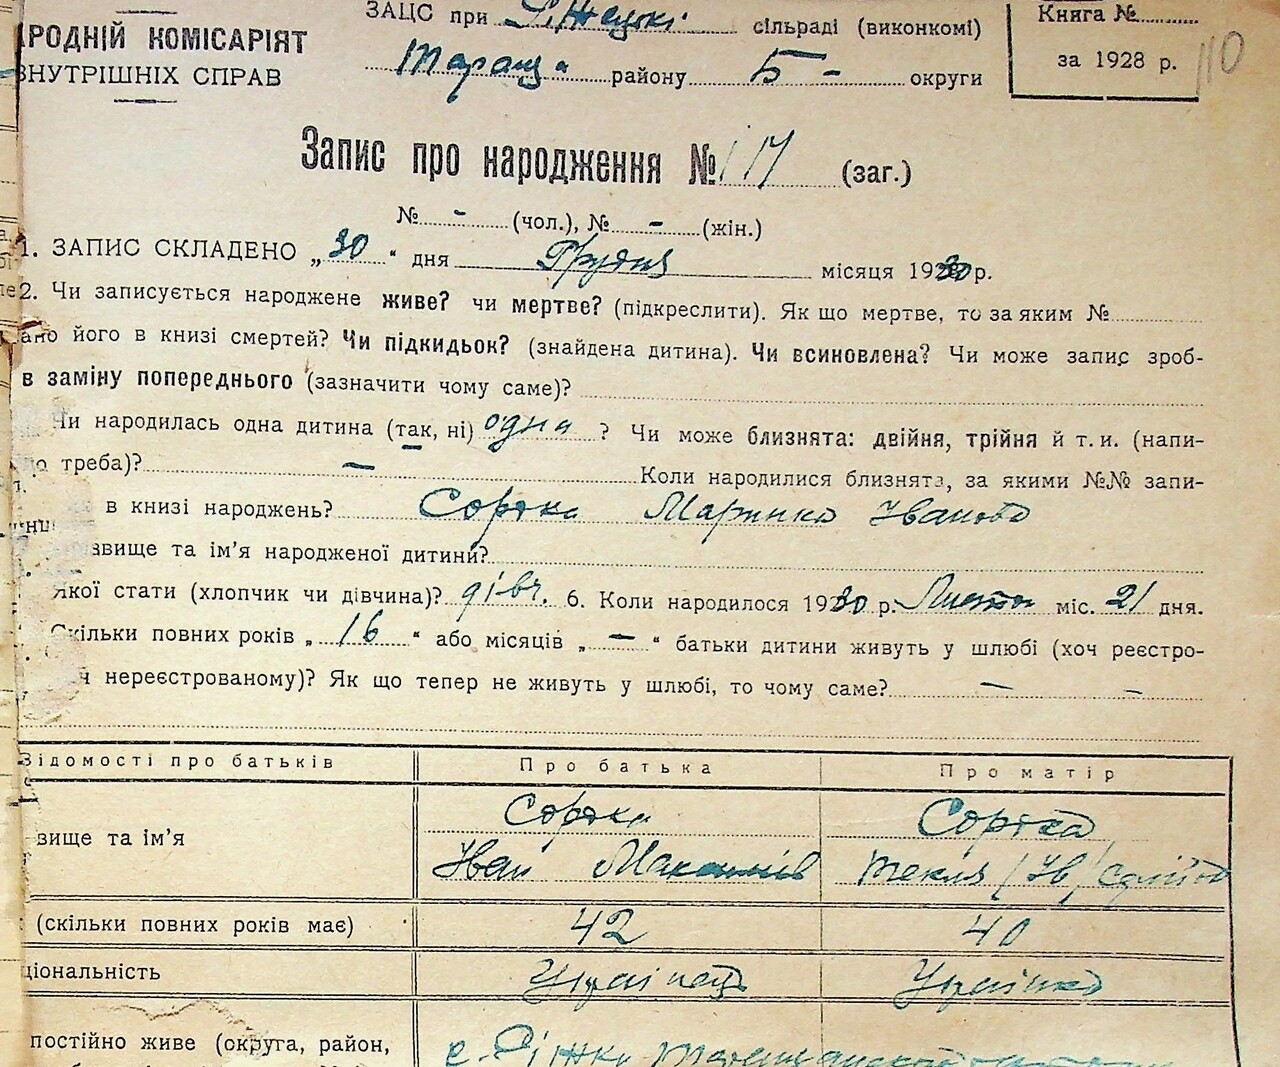 ЗАЦС при сільраді (виконкомі)
Книга №
РОДНІЙ КОМІСАРІЯТ
ВНУТРІШНІХ СПРАВ
Таращ. району Б - округи
за 1928 р.
110
Запис про народження № 117 (заг.)
№ - (чол.), № - (жін.)
1. ЗАПИС СКЛАДЕНО „30“ дня Грудня місяця 1930 р.
2. Чи записується народжене живе? чи мертве? (підкреслити). Як що мертве, то за яким №
ано його в книзі смертей? Чи підкидьок? (знайдена дитина). Чи всиновлена? Чи може запис зроб-
в заміну попереднього (зазначити чому саме)?
Чи народилась одна дитина (так, ні) одна ? Чи може близнята: двійня, трійня й т. и. (напи-
о треба)? — Коли народилися близнята, за якими №№ запи-
в книзі народжень? Сорока Маринка Іванова
звище та ім’я народженої дитини?
Якої стати (хлопчик чи дівчина)? дівч. 6. Коли народилося 1930 р. Листоп міс. 21 дня.
Скільки повних років „16“ або місяців „—“ батьки дитини живуть у шлюбі (хоч реєстро-
ч нереєстрованому)? Як що тепер не живуть у шлюбі, то чому саме? — —
Відомості про батьків Про батька Про матір
вище та ім’я Сорока Сорока
Іван Максимів Текля
(скільки повних років має) 42 40
ціональність Українець Українка
постійно живе (округа, район,